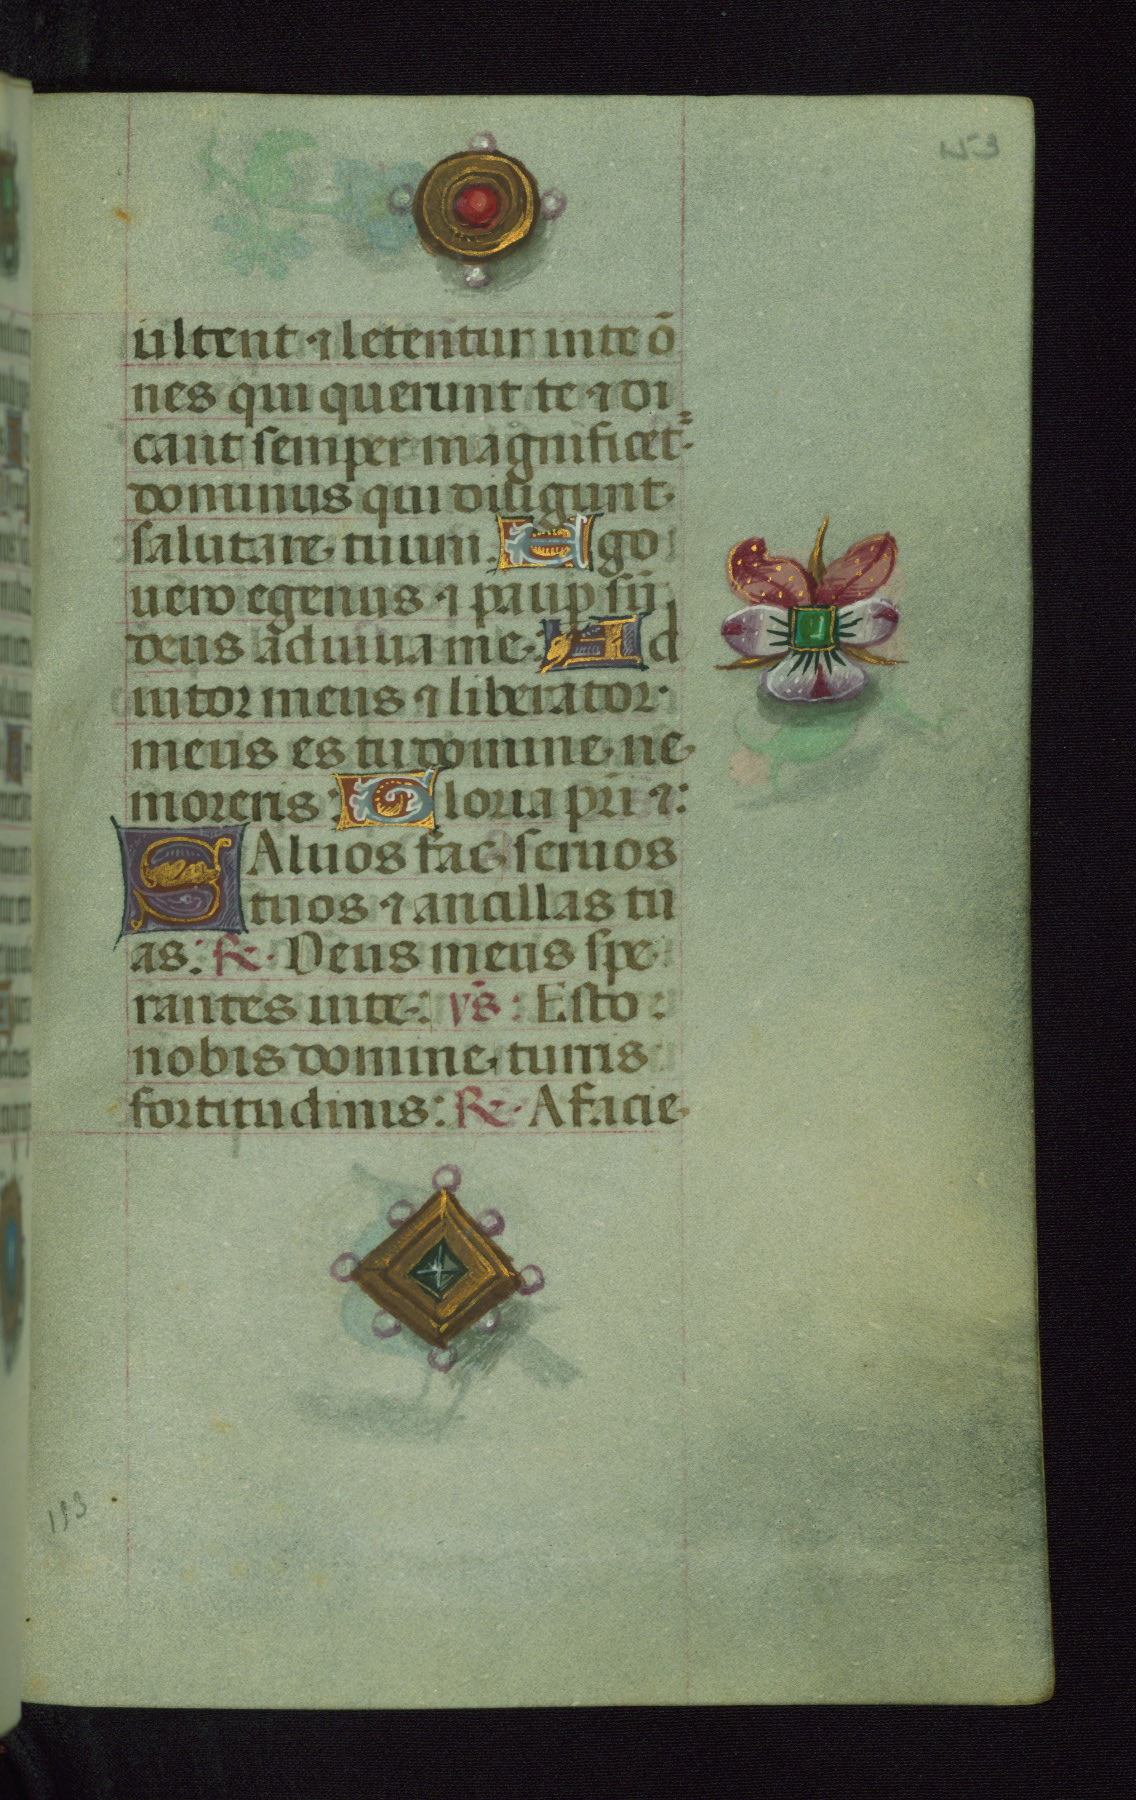 ultent ⁊ letentur in te õ
nes qui querunt te ⁊ di
cant semper magnificet᷑
dominus qui diligunt
salutare tuum. Ego
uero egenus ⁊ paup su᷑
deus adiuua me: Ad
iutor meus ⁊ liberator
meus es tu domine ne
moreris: Gloria pri ⁊:
SAluos fac seruos
tuos ⁊ ancillas tu
as: R. Deus meus spe
rantes in te: vs: Esto
nobis domine turris
fortitudinis: R. A facie
193